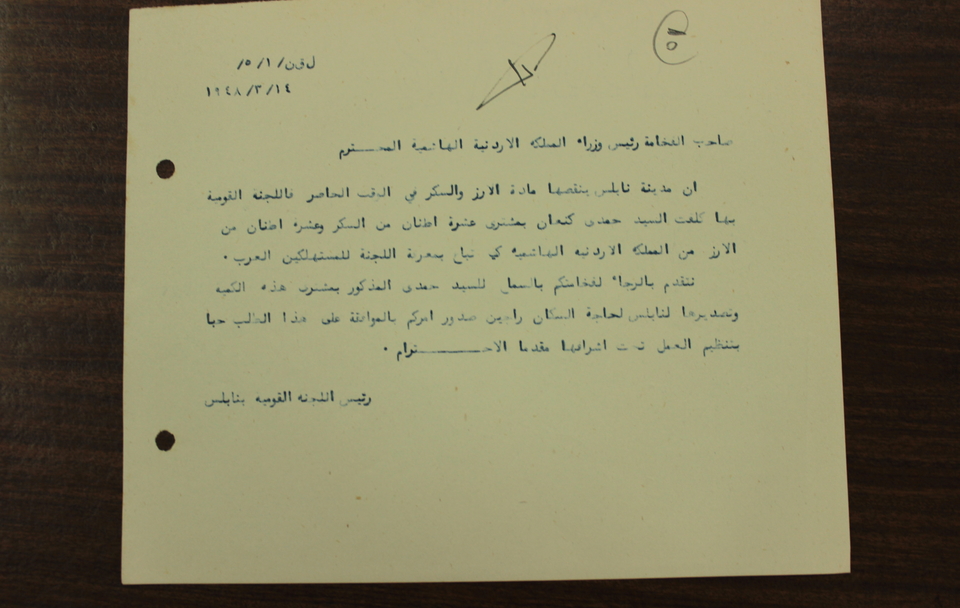 ٥
ل ق ن/ ٥/١/
١٩٤٨/٣/١٤
صاحب الفخامة رئيس وزراء المملكه الاردنية الهاشمية المحـــترم
ان مدينة نابلس ينقصها مادة الارز والسكر في الوقت الحاضر فاللجنة القومية
بها كلفت السيد حمدى كنعان بمشترى عشرة اطنان من السكر وعشرة اطنان من
الارز من المملكه الاردنيه الهاشميه كي تباع بمعرفة اللجنة للمستهلكين العرب .
نتقدم بالرجاء لفخامتكم بالسماح للسيد حمدى المذكور بمشترى هذه الكميه
وتصديرها لنابلس لحاجة السكان راجين صدور امركم بالموافقة على هذا الطلب حبا
بتنظيم العمل تحت اشرافها مقدما الاحــــــترام .
رئيس اللجنه القوميه بنابلس